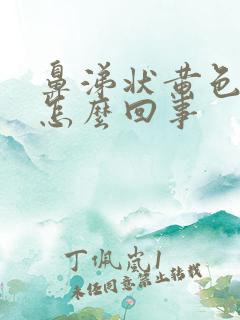 鼻涕状黄色
怎麽回事
丁佩岚1
未经同意禁止转载